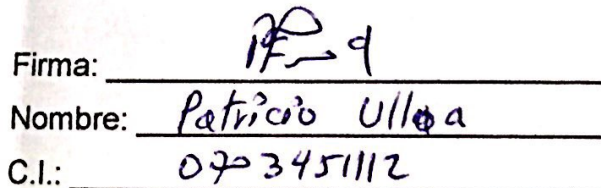 Firma:
Nombre: Patricio Ulloa
C.I.: 0703451112